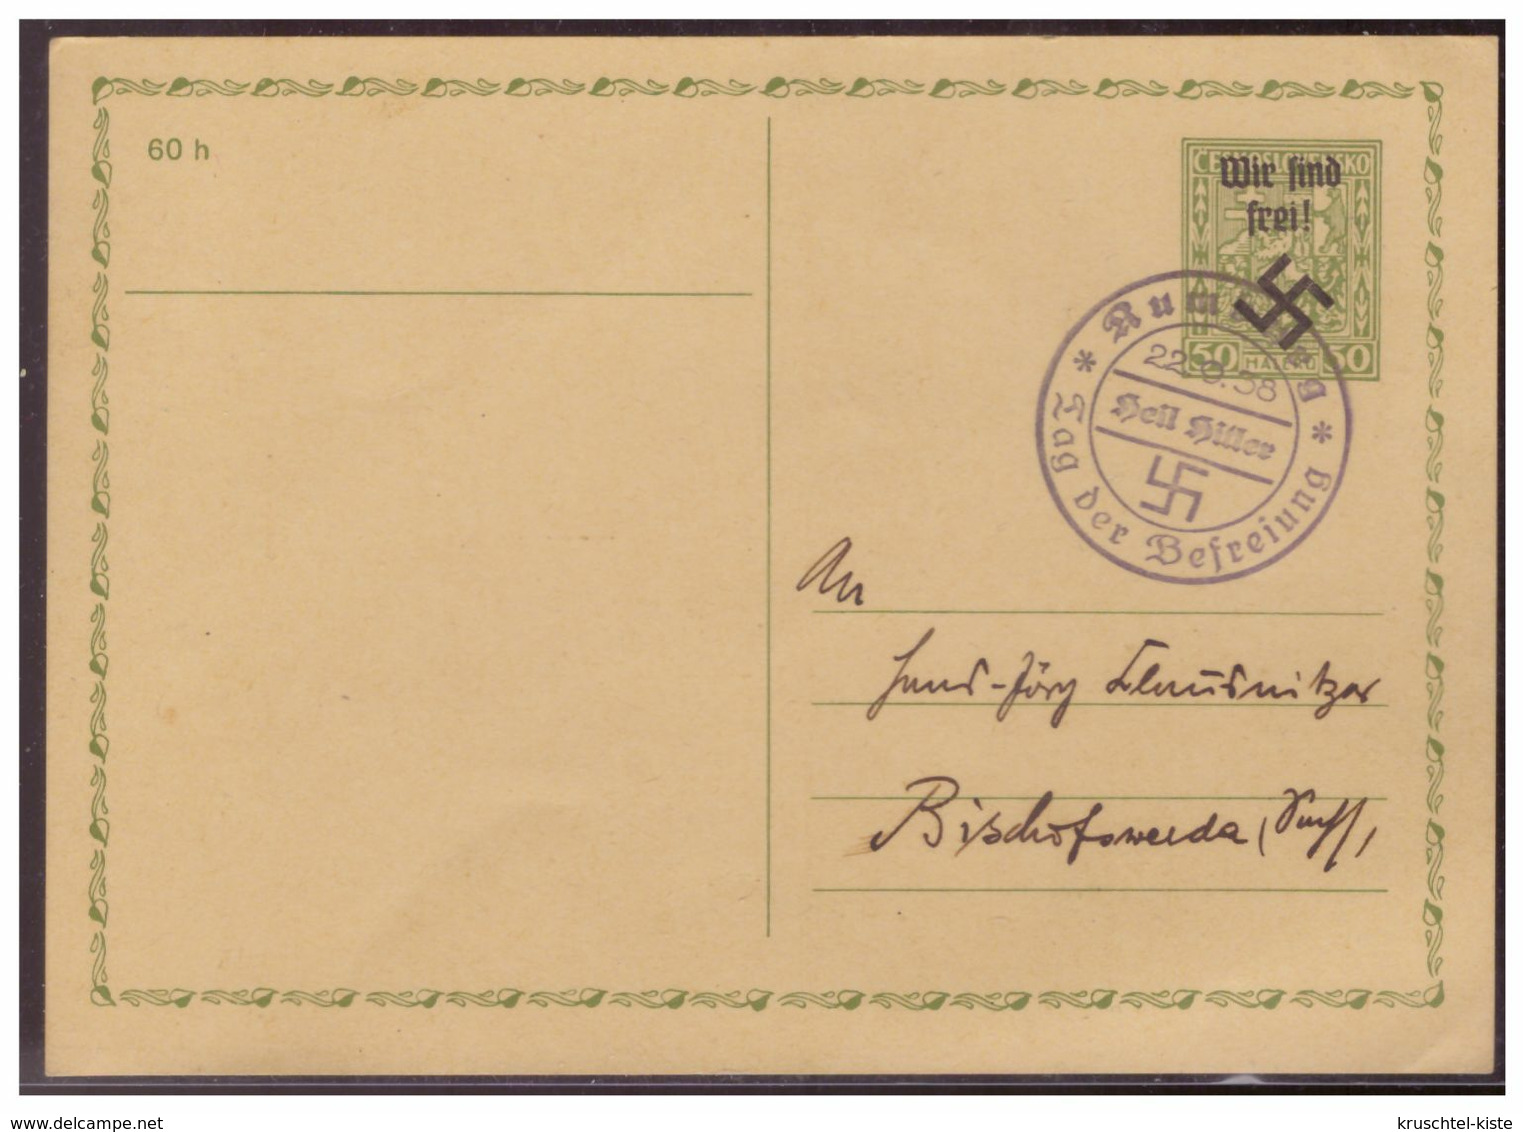 60 h
ČESKOSLOVENSKO
Wir sind
frei!
50 HALÉŘŮ 50
* Rumburg *
22.9.38
Heil Hitler
Tag der Befreiung
An
Hans-Jörg Clausnitzer
Bischofswerda, Sachs,
www.delcampe.net
kruschtel-kiste